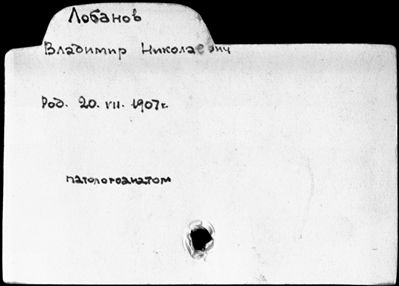 Лобанов
Владимир Николаевич
Род. 20. VII. 1907 г.
патологоанатом